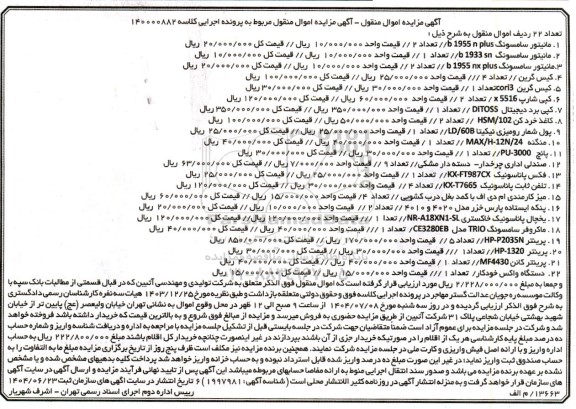 آگهی مزایده اموال منقول - آگهی مزایده اموال منقول مربوط به پرونده اجرایی کلاسه ۱۴۰۰۰۰۸۸۲
تعداد ۲۲ ردیف اموال منقول به شرح ذیل :
۱. مانیتور سامسونگ b 1955 n plus// تعداد ۲ // قیمت واحد ۱۰/۰۰۰/۰۰۰ ریال // قیمت کل ۲۰/۰۰۰/۰۰۰ ریال
۲. مانیتور سامسونگ b 1933 sn // تعداد ۱ // قیمت واحد ۱۰/۰۰۰/۰۰۰ ریال // قیمت کل ۱۰/۰۰۰/۰۰۰ ریال
۳.مانیتور سامسونگ b 1955 nx plus// تعداد ۲ // قیمت واحد ۱۰/۰۰۰/۰۰۰ ریال // قیمت کل ۲۰/۰۰۰/۰۰۰ ریال
۴. کیس گرین // تعداد ۴ /// قیمت واحد ۲۵/۰۰۰/۰۰۰ ریال // قیمت کل ۱۰۰/۰۰۰/۰۰۰ ریال
۵. کیس گرین cori3// تعداد ۱ // قیمت واحد ۳۰/۰۰۰/۰۰۰ ریال // قیمت کل ۳۰/۰۰۰/۰۰۰ ریال
۶. کپی شارپ x 5516 // تعداد ۲ // قیمت واحد ۶۰/۰۰۰/۰۰۰ ریال // قیمت کل ۱۲۰/۰۰۰/۰۰۰ ریال
۷. کپی برد دیجیتال DITOSS // تعداد ۱ // قیمت واحد ۳۵۰/۰۰۰/۰۰۰ ریال // قیمت کل ۳۵۰/۰۰۰/۰۰۰ ریال
۸. کاغذ خرد کن HSM/102 // تعداد ۲ // قیمت واحد ۵۰/۰۰۰/۰۰۰ ریال // قیمت کل ۱۰۰/۰۰۰/۰۰۰ ریال
۹. پول شمار رومیزی نیکیتا LD/60B// تعداد ۱ // قیمت واحد ۲۵/۰۰۰/۰۰۰ ریال // قیمت کل ۲۵/۰۰۰/۰۰۰ ریال
۱۰. منگنه MAX/H-12N/24 // تعداد ۱ // قیمت واحد ۴۰/۰۰۰/۰۰۰ ریال // قیمت کل ۴۰/۰۰۰/۰۰۰ ریال
۱۱. پانچ PU-3000// تعداد ۱ // قیمت واحد ۳۰/۰۰۰/۰۰۰ ریال // قیمت کل ۳۰/۰۰۰/۰۰۰ ریال
۱۲. صندلی اداری چرخدار- دسته دار مشکی// تعداد ۹ // قیمت واحد ۷/۰۰۰/۰۰۰ ریال // قیمت کل ۶۳/۰۰۰/۰۰۰ ریال
۱۳. فکس پاناسونیک KX-FT987CX// تعداد ۱ // قیمت واحد
۱۴. تلفن ثابت پاناسونیک KX-T7665// تعداد ۴ // قیمت واحد ۳۰/۰۰۰/۰۰۰ ریال // قیمت کل ۱۲۰/۰۰۰/۰۰۰ ریال
۱۵. میز کارمندی ام دی اف با کمد بغل درب کشویی // تعداد ۴ // قیمت واحد ۱۵/۰۰۰/۰۰۰ ریال // قیمت کل ۶۰/۰۰۰/۰۰۰ ریال
۱۶. پنکه ایستاده پارس خزر مدل ۴۰۲۰ و ۴۰۱۰ // تعداد ۲ // قیمت واحد ۱۰/۰۰۰/۰۰۰ ریال // قیمت کل ۲۰/۰۰۰/۰۰۰ ریال
۱۷. یخچال پاناسونیک خاکستری NR-A18XN1-SL// تعداد ۱ // قیمت واحد ۱۲۰/۰۰۰/۰۰۰ ریال // قیمت کل ۱۲۰/۰۰۰/۰۰۰ ریال
۱۸. ماکروفر سامسونگ TRIO مدل CE3280EB// تعداد ۱ // قیمت واحد ۴۰/۰۰۰/۰۰۰ ریال // قیمت کل ۴۰/۰۰۰/۰۰۰ ریال
۱۹. پرینتر HP-P2035N// تعداد ۵ // قیمت واحد ۱۷۰/۰۰۰/۰۰۰ ریال // قیمت کل ۸۵۰/۰۰۰/۰۰۰ ریال
۲۰. پرینتر HP-1320// تعداد ۱ // قیمت واحد ۳۰/۰۰۰/۰۰۰ ریال // قیمت کل ۳۰/۰۰۰/۰۰۰ ریال
۲۱. پرینتر کانن MF4430// تعداد ۱ // قیمت واحد ۴۰/۰۰۰/۰۰۰ ریال // قیمت کل ۴۰/۰۰۰/۰۰۰ ریال
۲۲. دستگاه واکس خودکار// تعداد ۱ // قیمت واحد ۱۵/۰۰۰/۰۰۰ ریال // قیمت کل ۱۵/۰۰۰/۰۰۰ ریال
و جمعا به مبلغ ۲/۲۲۸/۰۰۰/۰۰۰ ریال مورد ارزیابی قرار گرفته است که اموال منقول فوق الذکر متعلق به شرکت تولیدی و مهندسی آتبین که در قبال قسمتی از مطالبات بانک سپه با
وکالت موسسه و جویان عدالت گستر مهاجر در پرونده اجرایی کلاسه فوق و حقوق دولتی متعلقه بازداشت و طبق نظریه مورخ ۱۴۰۳/۱۲/۲۵ هیات سه نفره کارشناسان رسمی دادگستری
به شرح فوق الذکر ارزیابی گردیده و در روز سه شنبه مورخ ۱۴۰۴/۰۷/۰۸ از ساعت ۹ صبح الی ۱۲ ظهر در محل وقوع اموال به نشانی تهران خیابان ولیعصر (عج) پایین تر از خیابان
شهید بهشتی خیابان شجاعی پلاک ۳۱ شرکت آتبین از طریق مزایده حضوری به فروش میرسد و مزایده از مبالغ فوق شروع و به بالاترین قیمت که خریدار داشته باشد فروخته خواهد
شد و شرکت در جلسه مزایده برای عموم آزاد است ضمنا متقاضیان جهت شرکت در جلسه بایستی قبل از تشکیل جلسه مزایده با مراجعه به اداره و دریافت شناسه واریز و شماره حساب
ده درصد مبلغ پایه کارشناسی هر یک از اقلام را در صورتیکه خریدار جزی از آن باشند بپردازند در غیر اینصورت چنانچه خریدار کل اقلام باشند مبلغ ۲۲۲/۸۰۰/۰۰۰ ریال به حساب
اداره واریز و با ارائه اصل فیش واریزی و کارت ملی در جلسه مزایده شرکت نمایند. همچنین برنده مزایده نیز مکلف است ظرف پنج روز از تاریخ برگزاری مزایده مبلغ مابه التفاوت را به
حساب صندوق ثبت واریز نماید؛ در غیر این صورت مبلغ ده درصد واریز شده قابل استرداد نبوده و به حساب خزانه واریز خواهد شد پرداخت کلیه بدهیهای مشخص شده و یا مشخص
نشده بر عهده برنده مزایده می باشد و صدور سند انتقال اجرایی منوط به ارائه مفاصا حسابهای مربوطه میباشد این آگهی پس از تایید نهایی فرآیند مزایده و ارسال آگهی در سایت آگهی
های سازمان قرار خواهد گرفت و به منزله انتشار آگهی در روزنامه کثیر الانتشار محلی است (شناسه آگهی: ۱۹۹۷۹۸۱) ۶ تاریخ انتشار در سایت آگهی های سازمان ثبت ۱۴۰۴/۰۶/۲۳
۱۳۶۶۳/ م الف
رییس اداره دوم اجرای اسناد رسمی تهران - اشرف شهریار